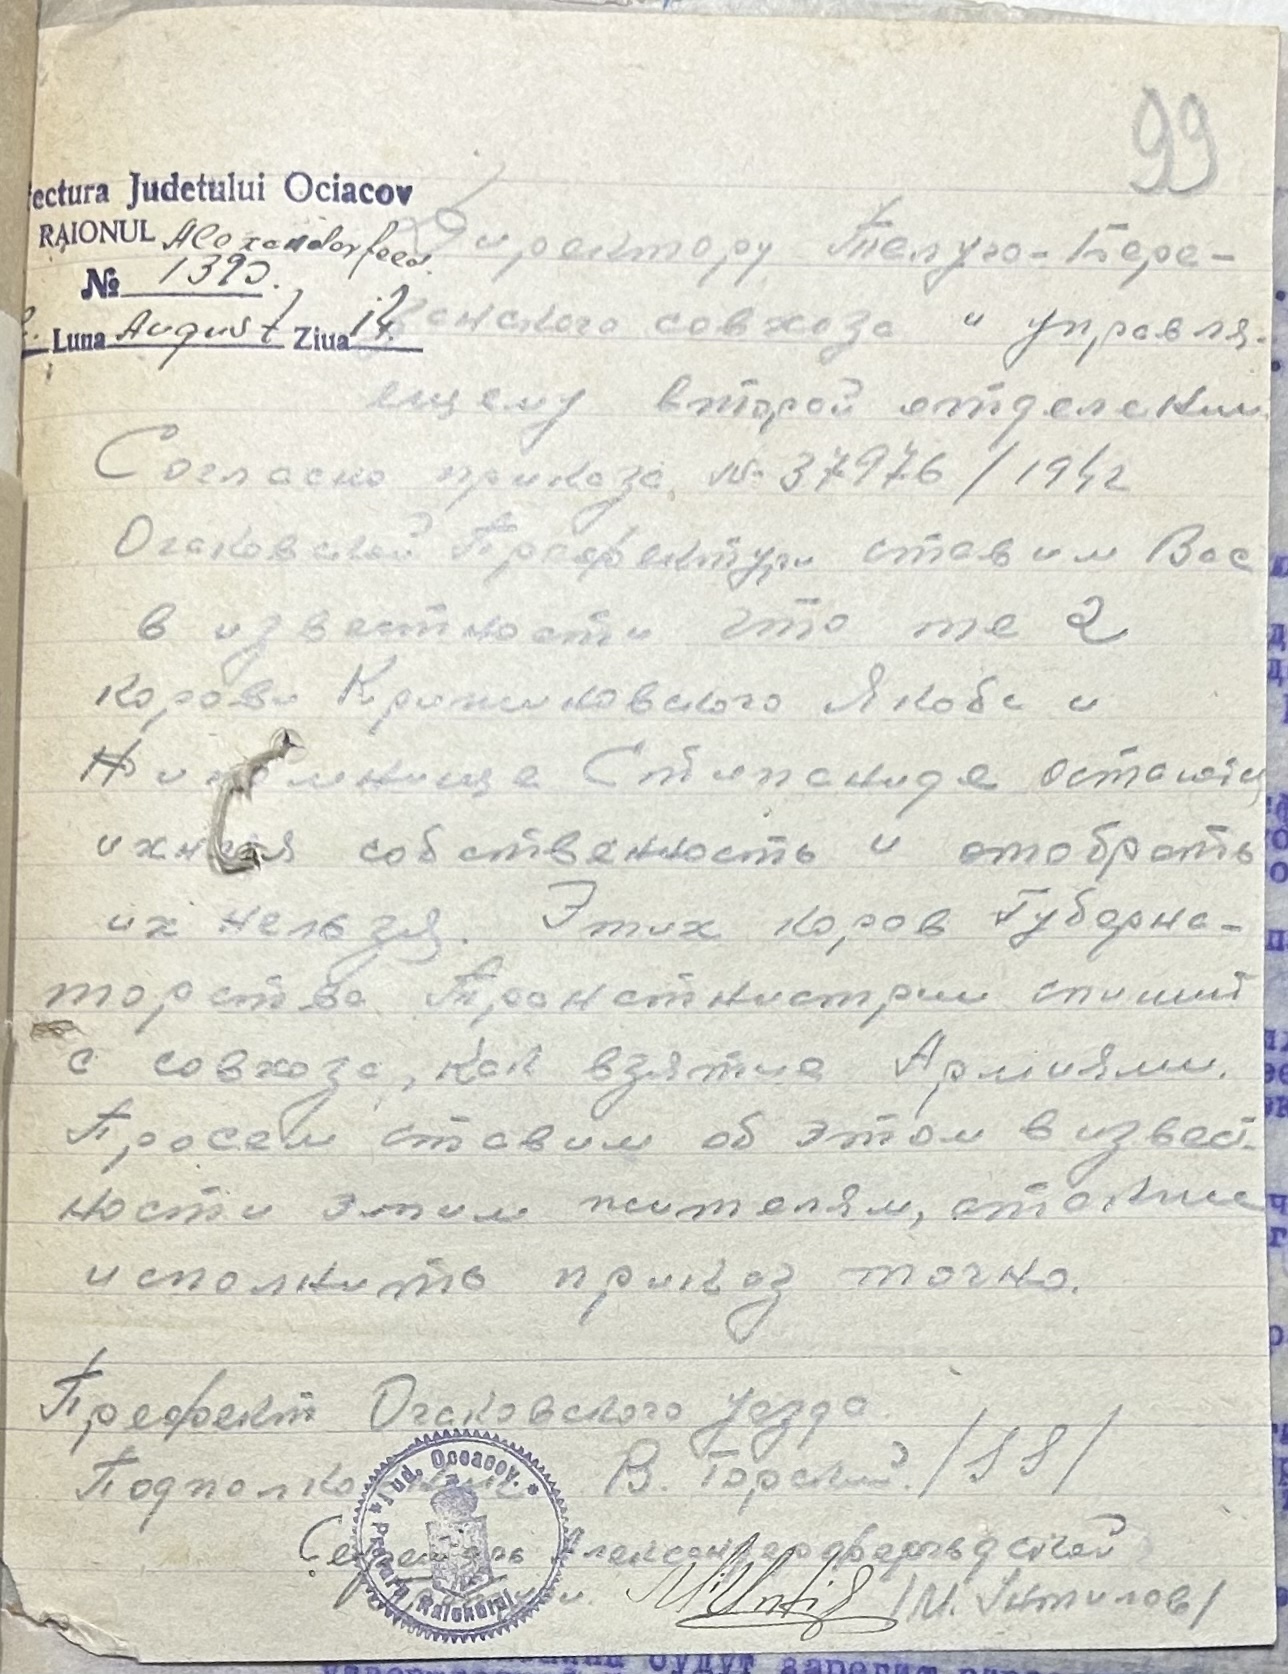 99
ectura Judetului Ociacov
RAIONUL Alexanderfeld
№ 1390.
2. Luna August Ziua 14.
Директору Телуго-Бере-
занского совхоза и управля-
ещему второй отделении
Согласно приказа № 37976/1942
Очаковской Префектури ставим Вас
в известности что те 2
корови Крижиковского Якова и
Стипаниде остаются
ихняя собственность и отобрать
их нельзя. Этих коров Губерна-
торства Транснистрии спишит
с совхоза, как взятие Армиями.
Просем ставим об этом в извест-
ности этим жителям, а также
исполнить приказ точно.
Префект Очаковского уезда
Подполковник В. Горский /SS/
Секретарь Александерфельдской
/М. Антилов/
* Jud. Oceacov. *
Pretura Raionului
будут